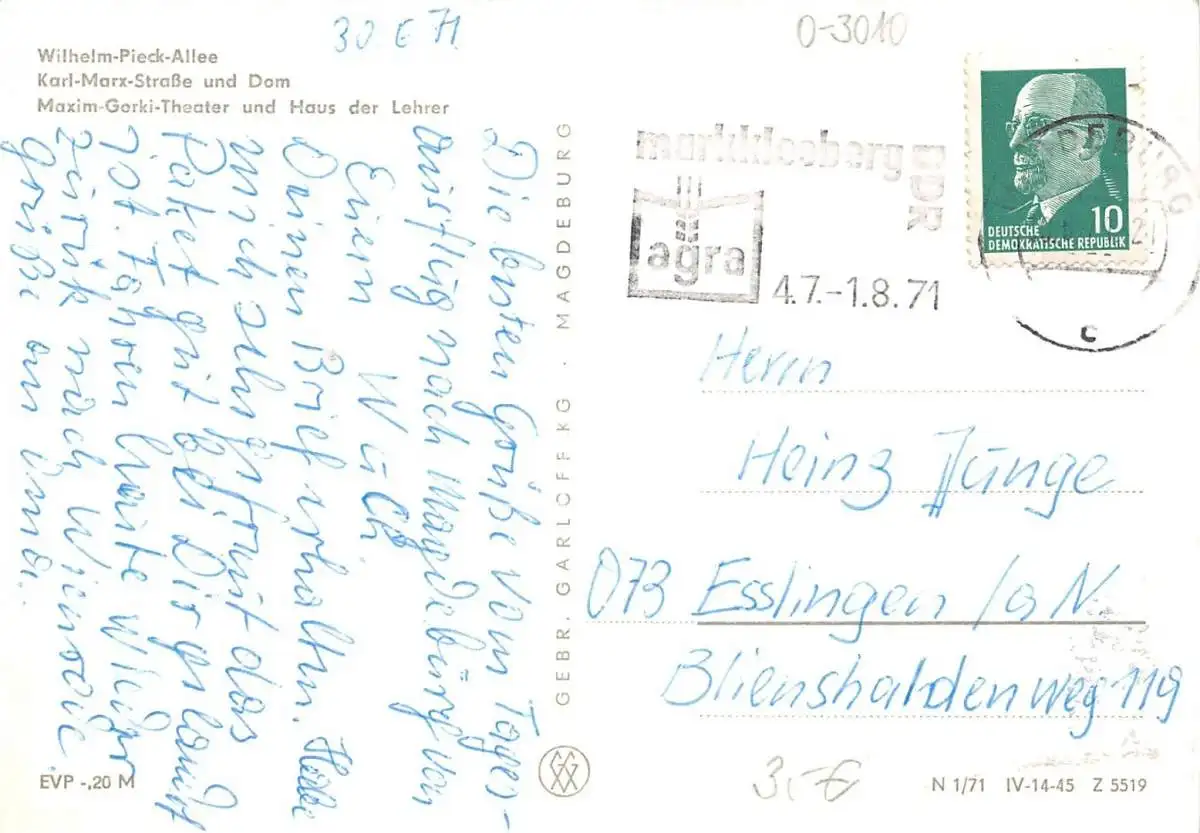 30. 6 71
0-3010
Wilhelm-Pieck-Allee
Karl-Marx-Straße und Dom
Maxim-Gorki-Theater und Haus der Lehrer
Die besten Grüße vom Tages-
ausflug nach Magdeburg von
Euern
Deinen Brief erhalten. Habe
mich sehr gefreut das
Paket gut bei Dir gelandet
ist. Fahren heute wieder
zurück nach
Grüße an Oma.
GEBR. GARLOFF KG · MAGDEBURG
markkleeberg DDR
agra
4.7.-1.8.71
DEUTSCHE
DEMOKRATISCHE REPUBLIK
10
C
Herrn
Heinz Junge
073 Esslingen /a N.
Blienshaldenweg 119
EVP -,20 M
3,-€
N 1/71 IV-14-45 Z 5519